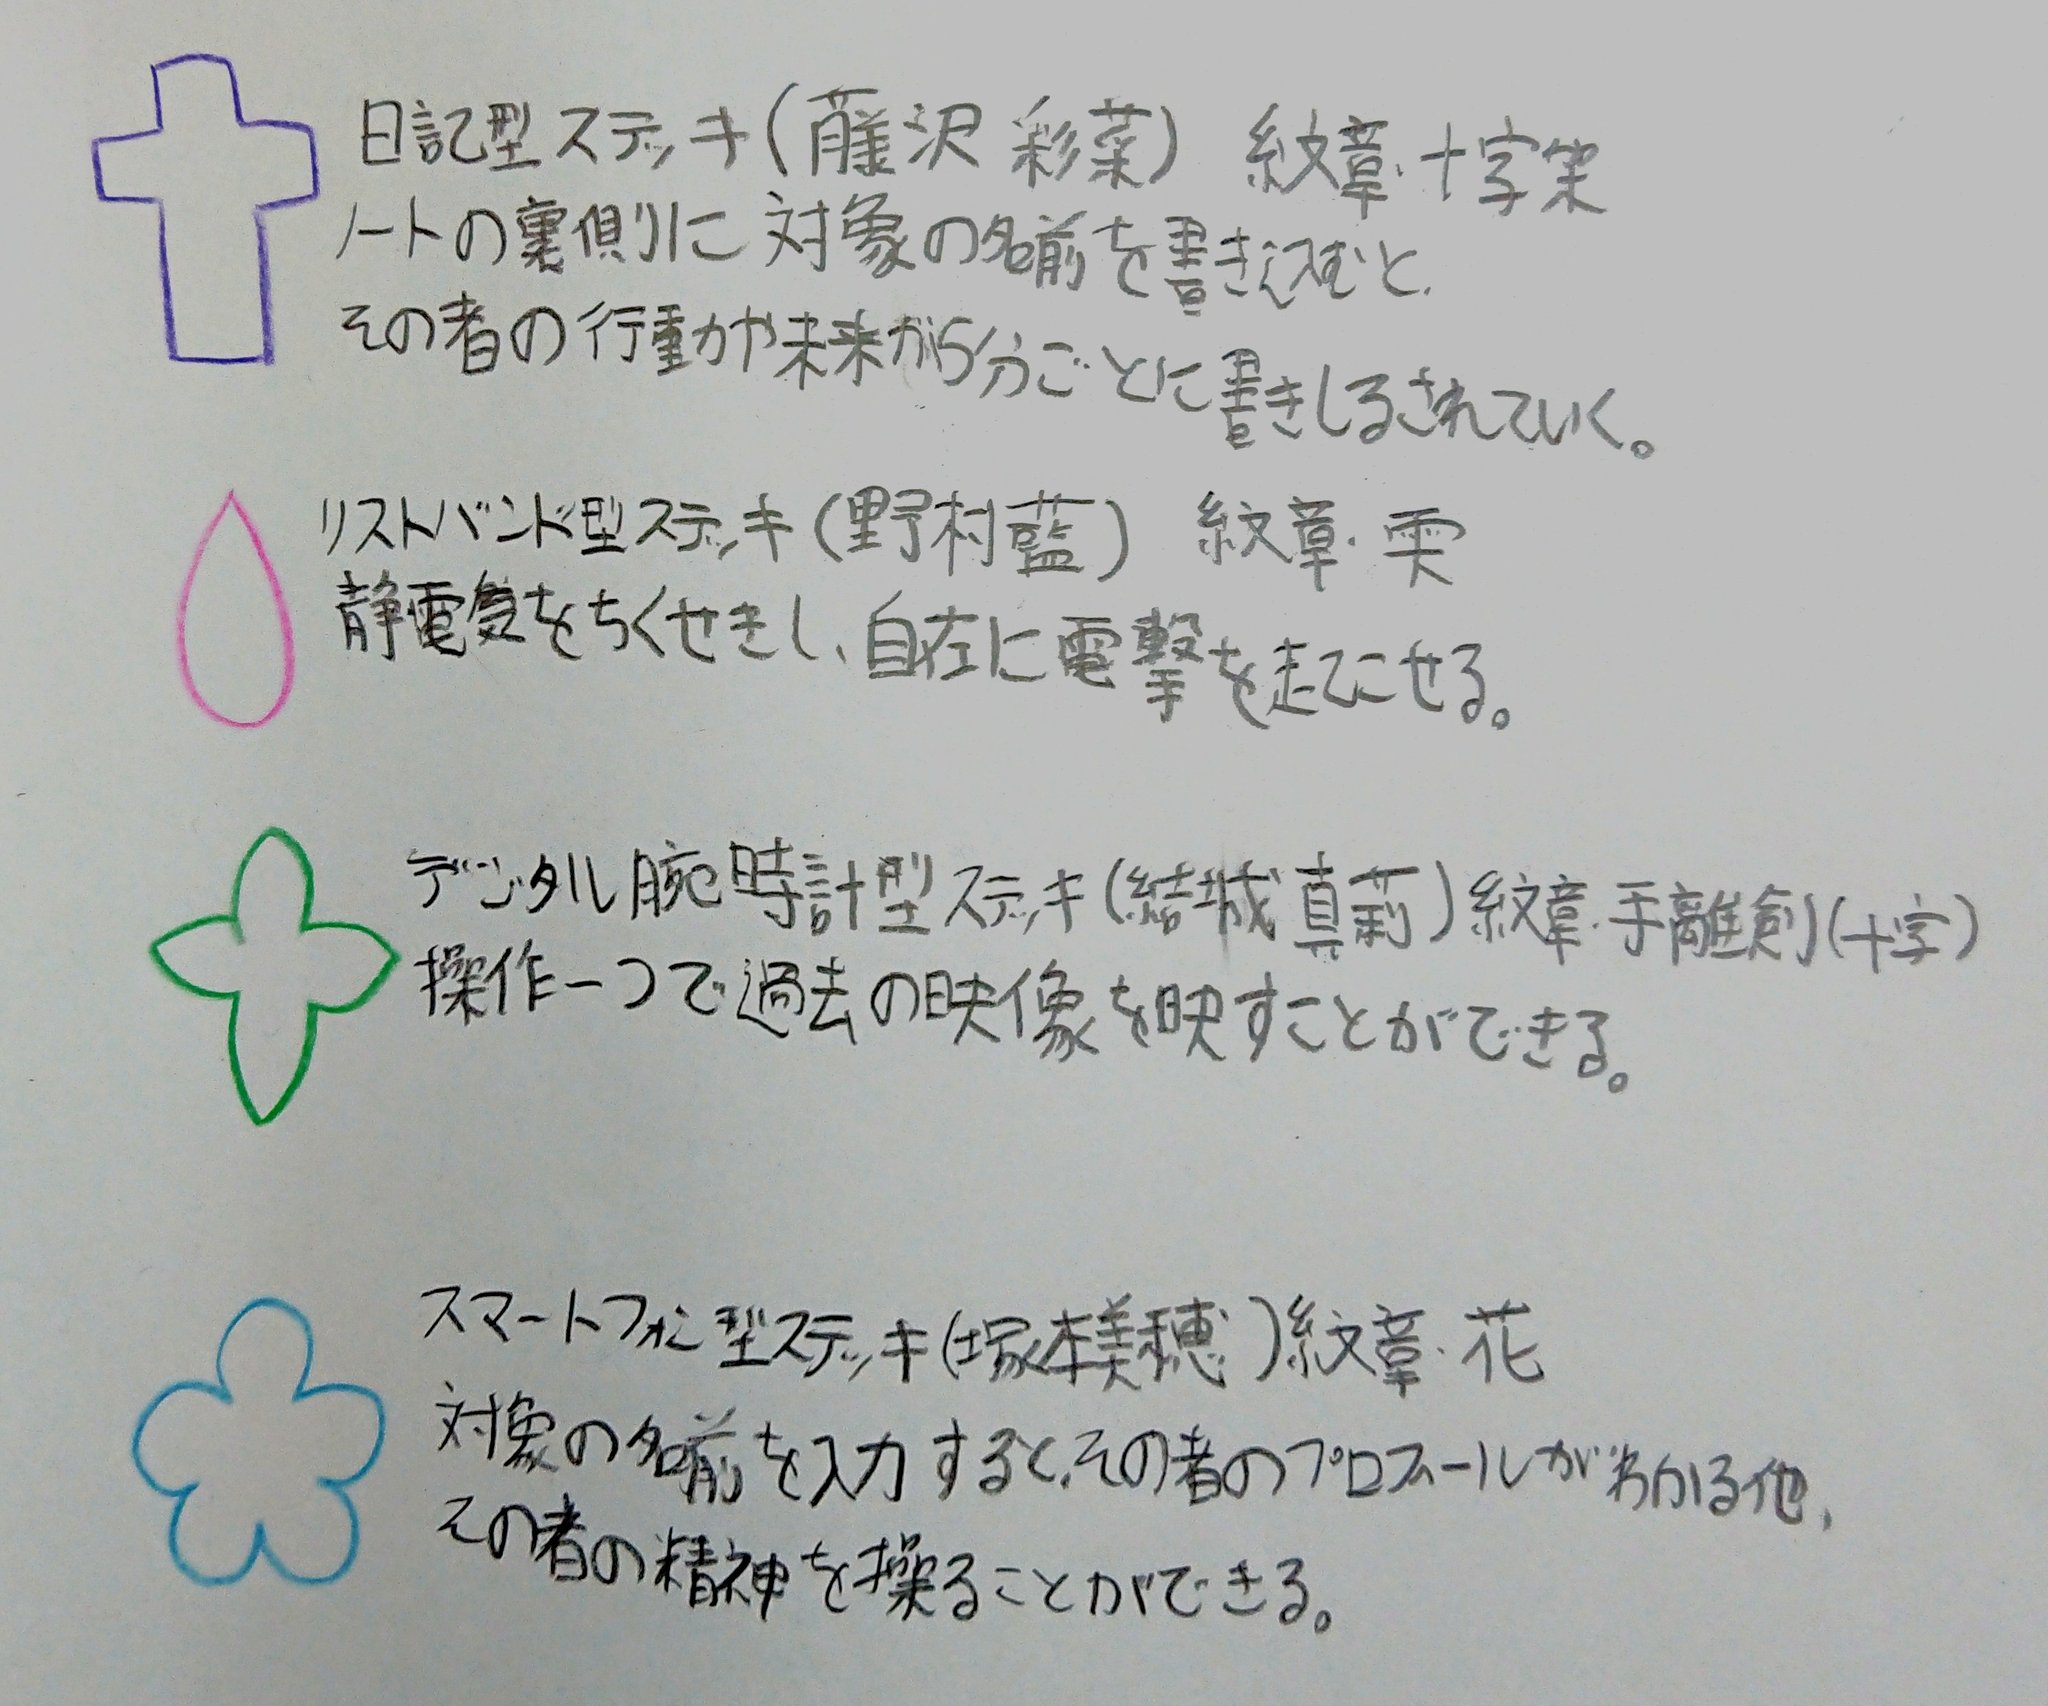 日記型ステッキ(藤沢 彩菜) 紋章・十字架
ノートの裏側に対象の名前を書き込むと、
その者の行動や未来が5分ごとに書きしるされていく。
リストバンド型ステッキ(野村藍) 紋章・雫
静電気をちくせきし、自在に電撃を起こせる。
デジタル腕時計型ステッキ(結城真莉)紋章・手離剣(十字)
操作一つで過去の映像を映すことができる。
スマートフォン型ステッキ(塚本美穂)紋章・花
対象の名前を入力すると、その者のプロフィールがわかる他、
その者の精神を操ることができる。